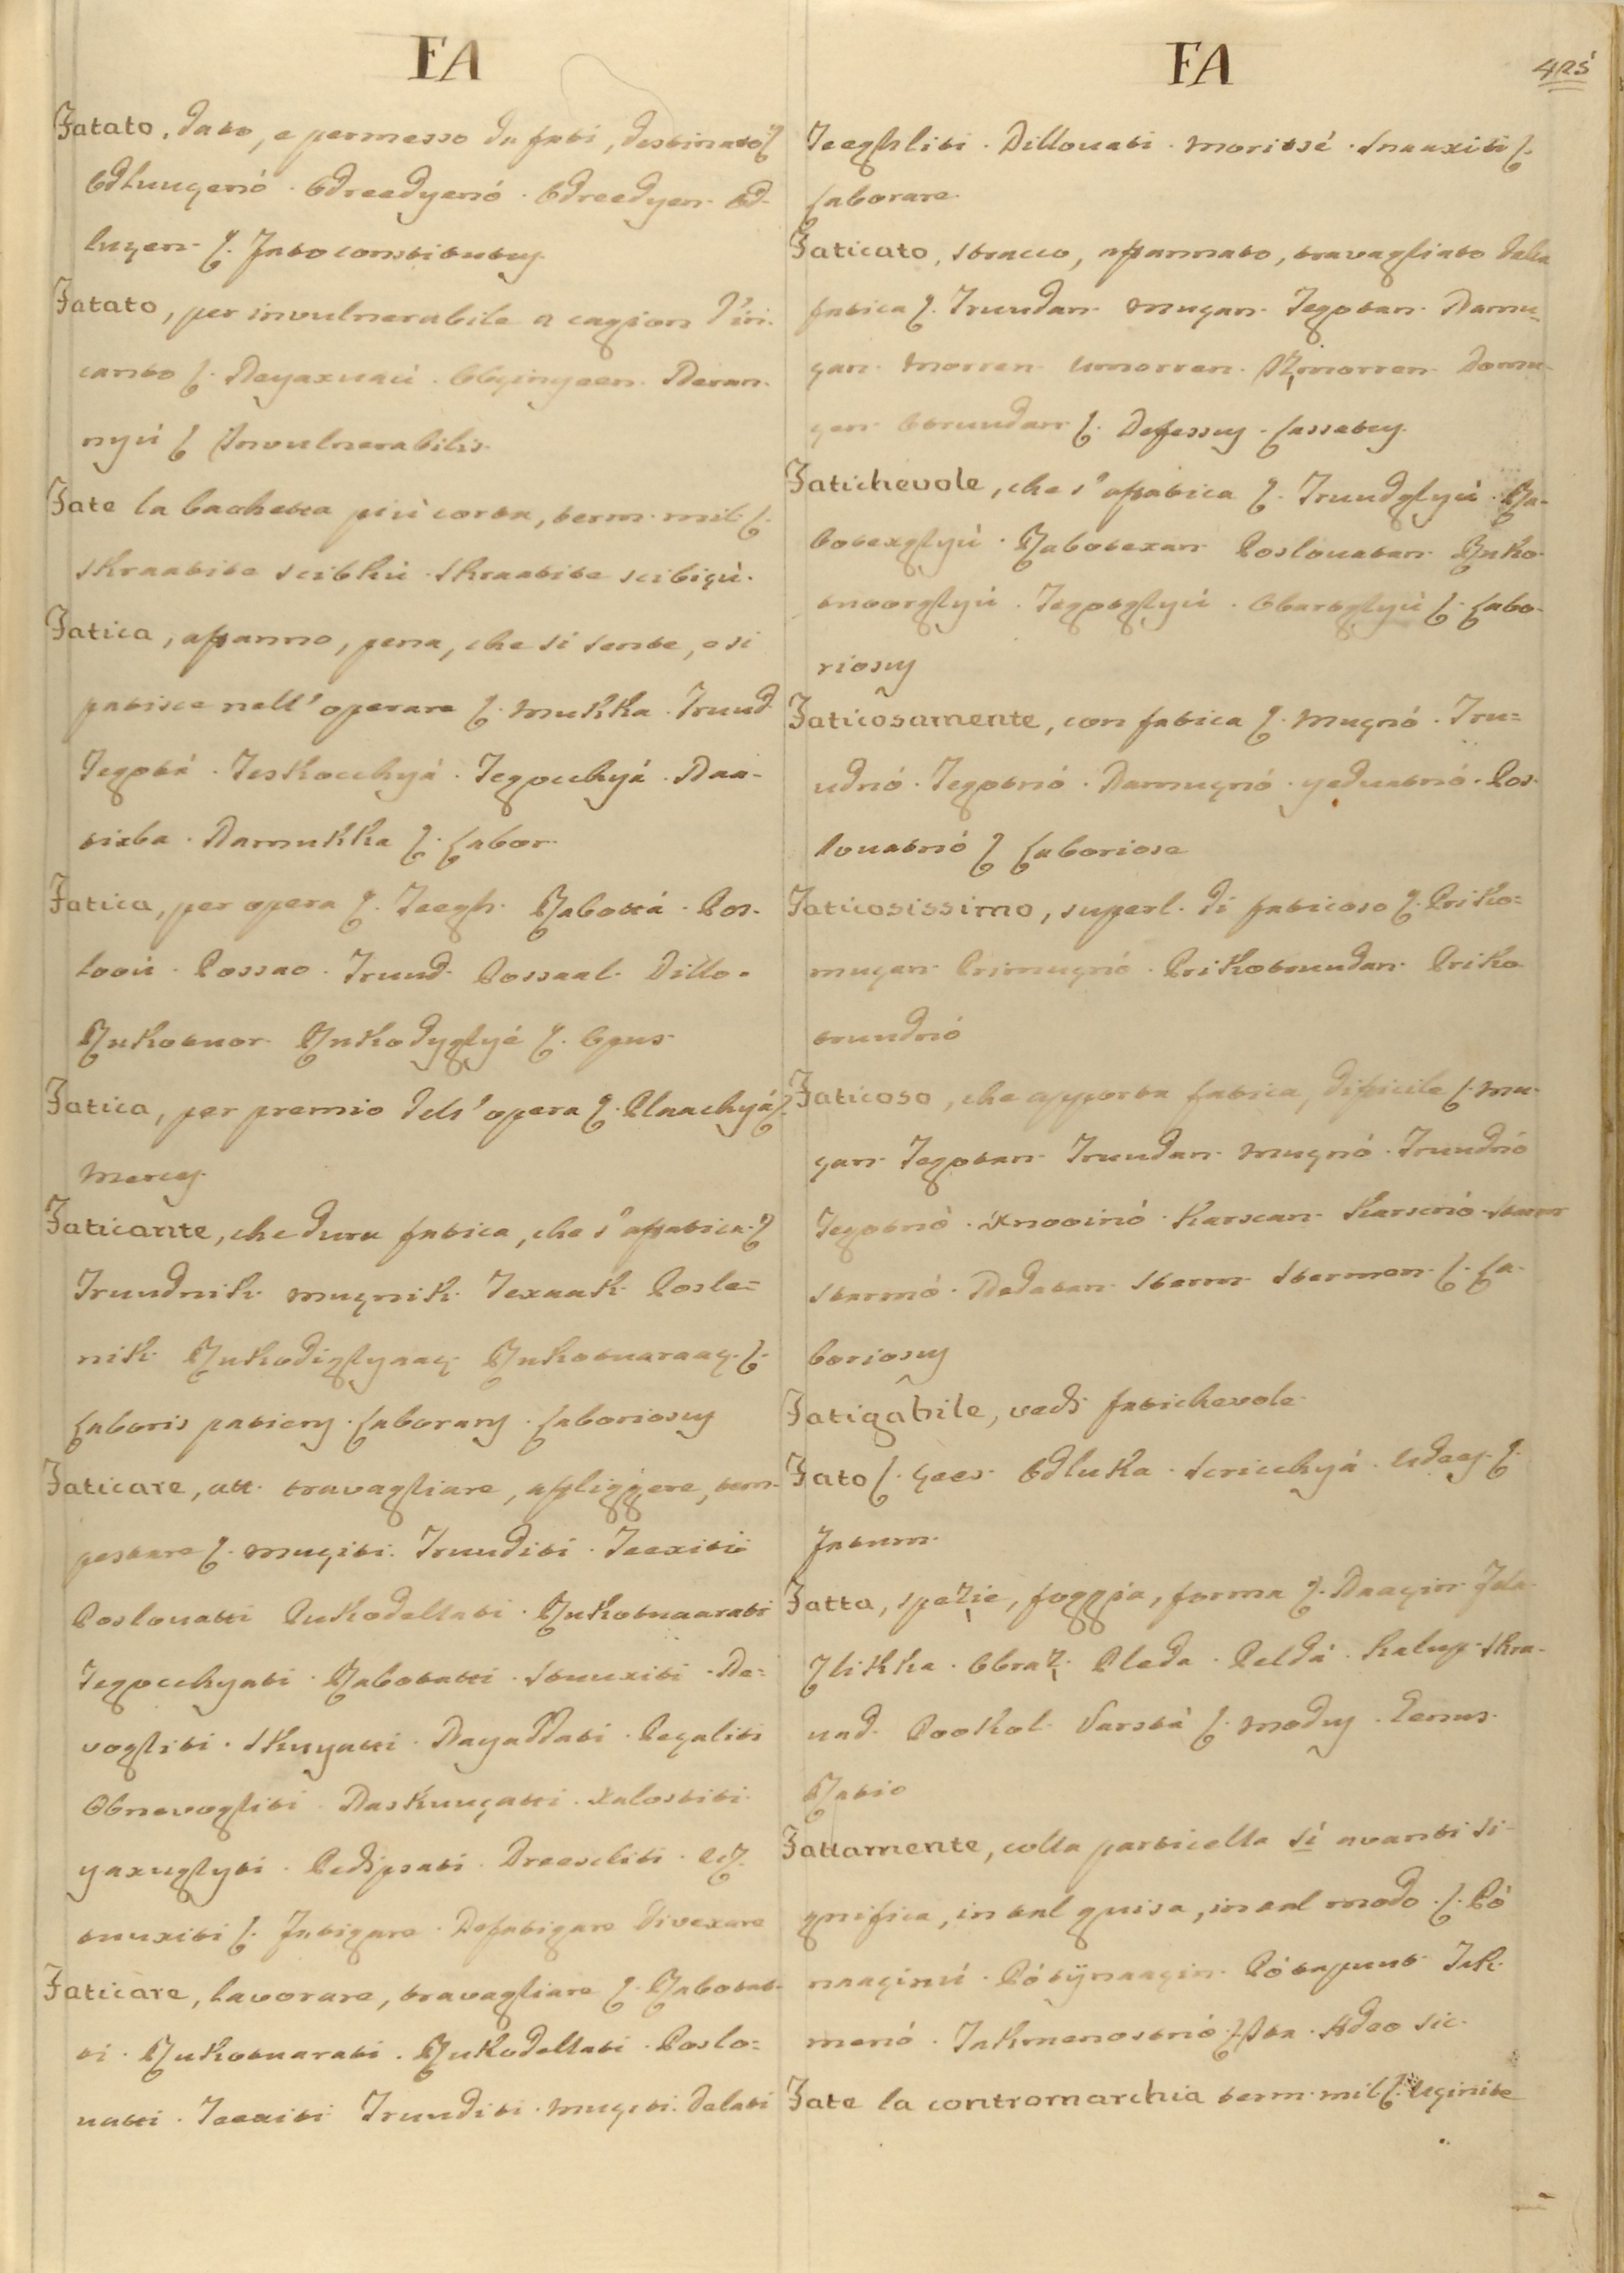 FA
Fatato, dato, e permesso da fati, destinato ʃ.
Odlucyenó. Odreedyenó. Odreedyen. Od-
lucyen. ʃ. Fato constitutus.
Fatato, per invulnerabile a cagion d'in-
canto ʃ. Neyaxuaú. Obcyinyeen. Neran-
nyú ʃ. Invulnerabilis.
Fate la bachetta più corta, term. mil. ʃ.
Skraatite scibkú. Skraatite scibiçú.
Fatica, affanno, pena, che si sente, o si
patisce nell'operare ʃ. Mukka. Truud
Tegotá. Teskocchyá. Tegocchyá. Naa-
tixba. Namukka ʃ. Labor.
Fatica, per opera ʃ. Teegh. Rabottá. Pos-
looú. Possao. Truud. Possaal. Dillo.
Rukotuor. Rukodyglyé ʃ. Opus.
Fatica, per premio dell'opera ʃ. Plaachyá ʃ.
Merces.
Faticante, che dura fatica, che s'affatica. ʃ.
Truudnik. Muçnik. Texaak. Posle=
nik. Rukodiglyaaç. Rukotuaraaç. ʃ.
Laboris patiens. Laborans. Laboriosus
Faticare, att. travagliare, affliggere, tem-
pestare ʃ. Muçiti. Truuditi. Teexiti
Poslouatti Rukodellati. Rukotuaarati
Tegocchyati. Rabotatti. Stuuxiti. Ne=
vogliti. Skuyatti. Nayaddati. Peçaliti
Obnevogliti. Naskuuçatti. Xalostiti.
yaxuglyti. Pedipsati. Dreeseliti. Uz-
tuuxiti ʃ. Fatigare. Defatigare divexare
Faticare, lavorare, travagliare ʃ. Rabotat-
ti. Rukotuarati. Rukodellati. Poslo=
uatti. Teexiti Truuditi. Muçiti. Delati
FA
425
Teeghliti. Dillouati. Moritsé. Snaaxiti ʃ.
Laborare.
Faticato, stracco, affannato, travagliato dalla
fatica ʃ. Truudan. Muçan. Tegotan. Namu-
çan. Morren. Umorren. Izmorren. Domu-
çen. Otruudan ʃ. Defessus. Lassatus.
Fatichevole, che s'affatica ʃ. Truudglyú. Ra-
botexglyú. Rabotexan. Poslouatan. Ruko-
tuoorglyú. Tegotglyú. Obartglyú ʃ. Labo-
riosus
Faticosamente, con fatica ʃ. Muçnó. Tru=
udnó. Tegotnó. Namuçnó. yeduatnó. Pos-
louatnó ʃ. Laboriose
Faticosissimo, superl. di faticoso ʃ. Priko=
muçan. Primuçnó. Prikotruudan. Priko
truudnó
Faticoso, che apporta fatica, difficile ʃ. Mu-
çan. Tegotan. Truudan. Muçnó. Truudnó
Tegotnó. Xnooinó. Karscan. Karscnó. Starm
Starmó. Nedatan. Sterm. Stermen. ʃ. La-
boriosus
Fatigabile, vedi fatichevole
Fato ʃ. Çees. Odluka. Scricchyá. Udeeg. ʃ.
Fatum.
Fatta, spezie, foggia, forma ʃ. Naaçin. Fela.
Zlikka. Obraz. Pleda. Peldá. Kalup. Skra-
uad. Pookol. Varstá ʃ. Modus. Genus.
Ratio
Fattamente, colla particella sì avanti si-
gnifica, in tal guisa, in tal modo. ʃ. Pó
naaçinú. Pó tÿnaaçin. Pó taputt. Tak-
menó. Takmenostnó. ʃ. Ita. Adeo Sic.
Fate la contromarchia term. mil. ʃ. Uçinite